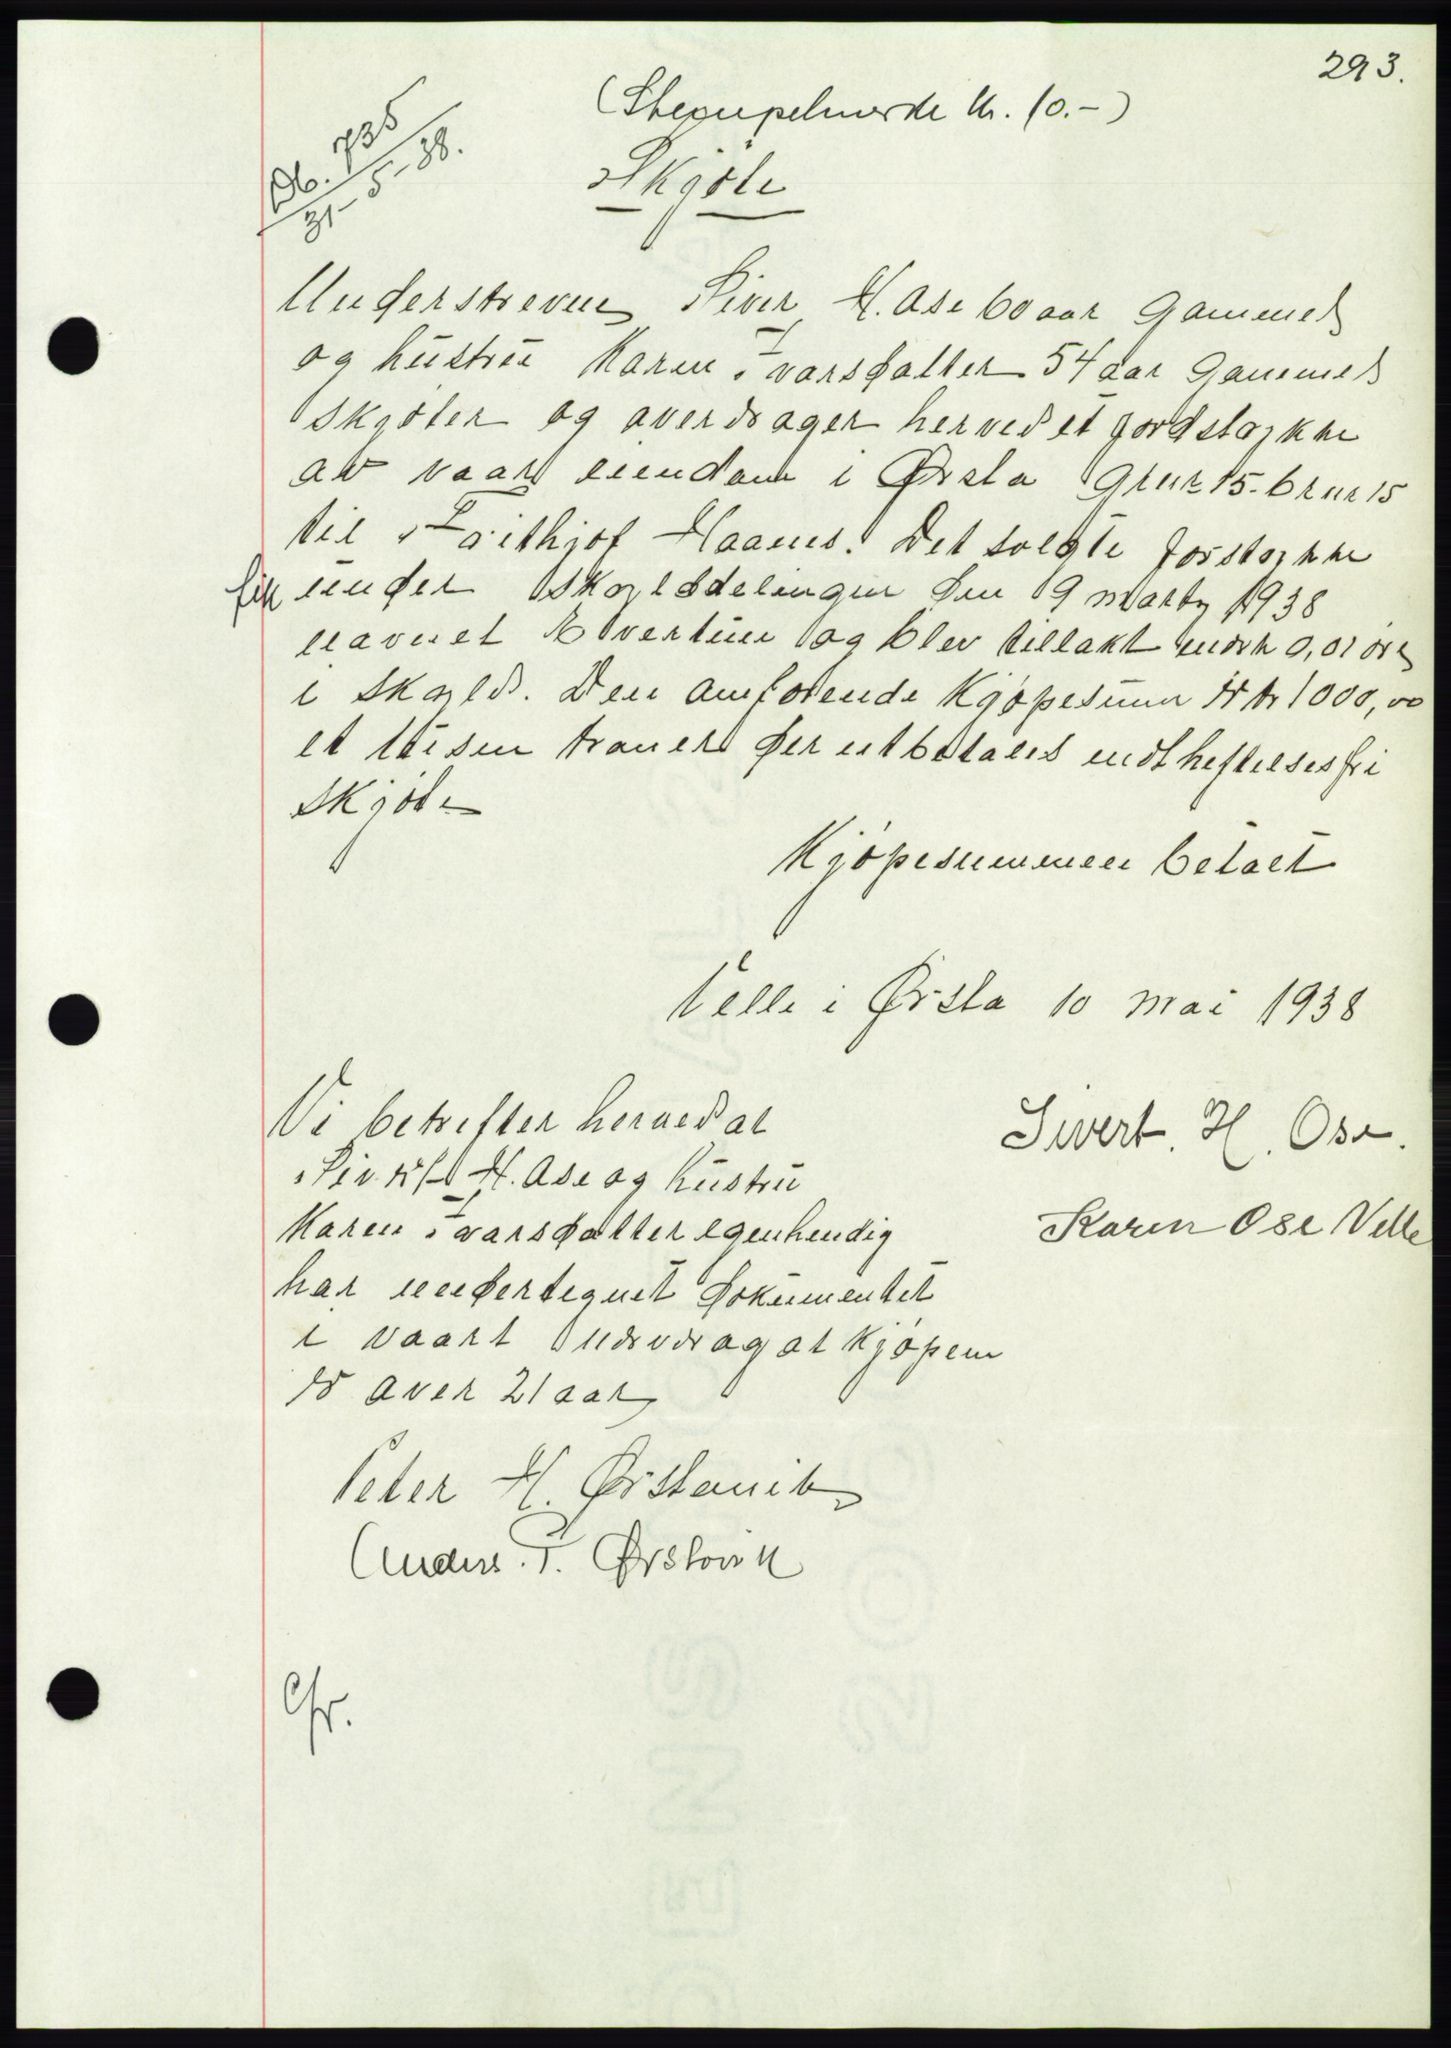 293.
(Stempelmerke kr. 10.-)
Db. 735
31-5-38.
Skjøte
Underskrevne Siver H. Ose 60 aar Gammel
og hustru Karen Ivarsdatter 54 aar Gammel
skjøter og overdrager herved et jordstøkke
av vaar eiendom i Ørsta Grnr 15 - brnr 15
til Frithjof Haanes. Det solgte jorstøkke
fik under skyldelingen den 9 marts 1938
navnet Evertun og blev tillakt mark 0,01 øre
i skyld. Den omforende Kjøpesum er kr 1000,00
et tusen kroner der utbetales mot heftelsesfri
skjøte
Kjøpesummen betalt
Velle i Ørsta 10 mai 1938
Vi betrefter herved at
Sivert H. Ose og hustru
Karen Ivarsdatter egenhendig
har undertegnet dokumentet
i vaart nærdrag at Kjøpem
er over 21 aar
Sivert. H. Ose.
Karen Ose Velle
Peter H. Ørstavik
Anders. P. Ørstavik